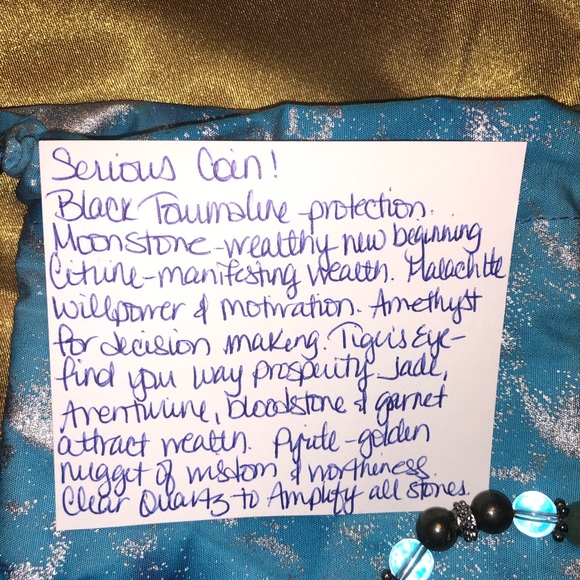 Serious Coin!
Black Tourmaline - protection.
Moonstone - wealthy new beginning
Citrine - manifesting wealth. Malachite
willpower & motivation. Amethyst
for decision making. Tigers Eye -
find you way prosperity. Jade,
Aventurine, bloodstone & garnet
attract wealth. Pyrite - golden
nugget of wisdom & worthiness.
Clear Quartz - to Amplify all stones.